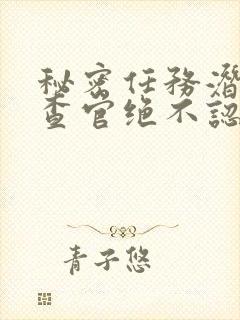 秘密任务潛
查官绝不認
青子悠